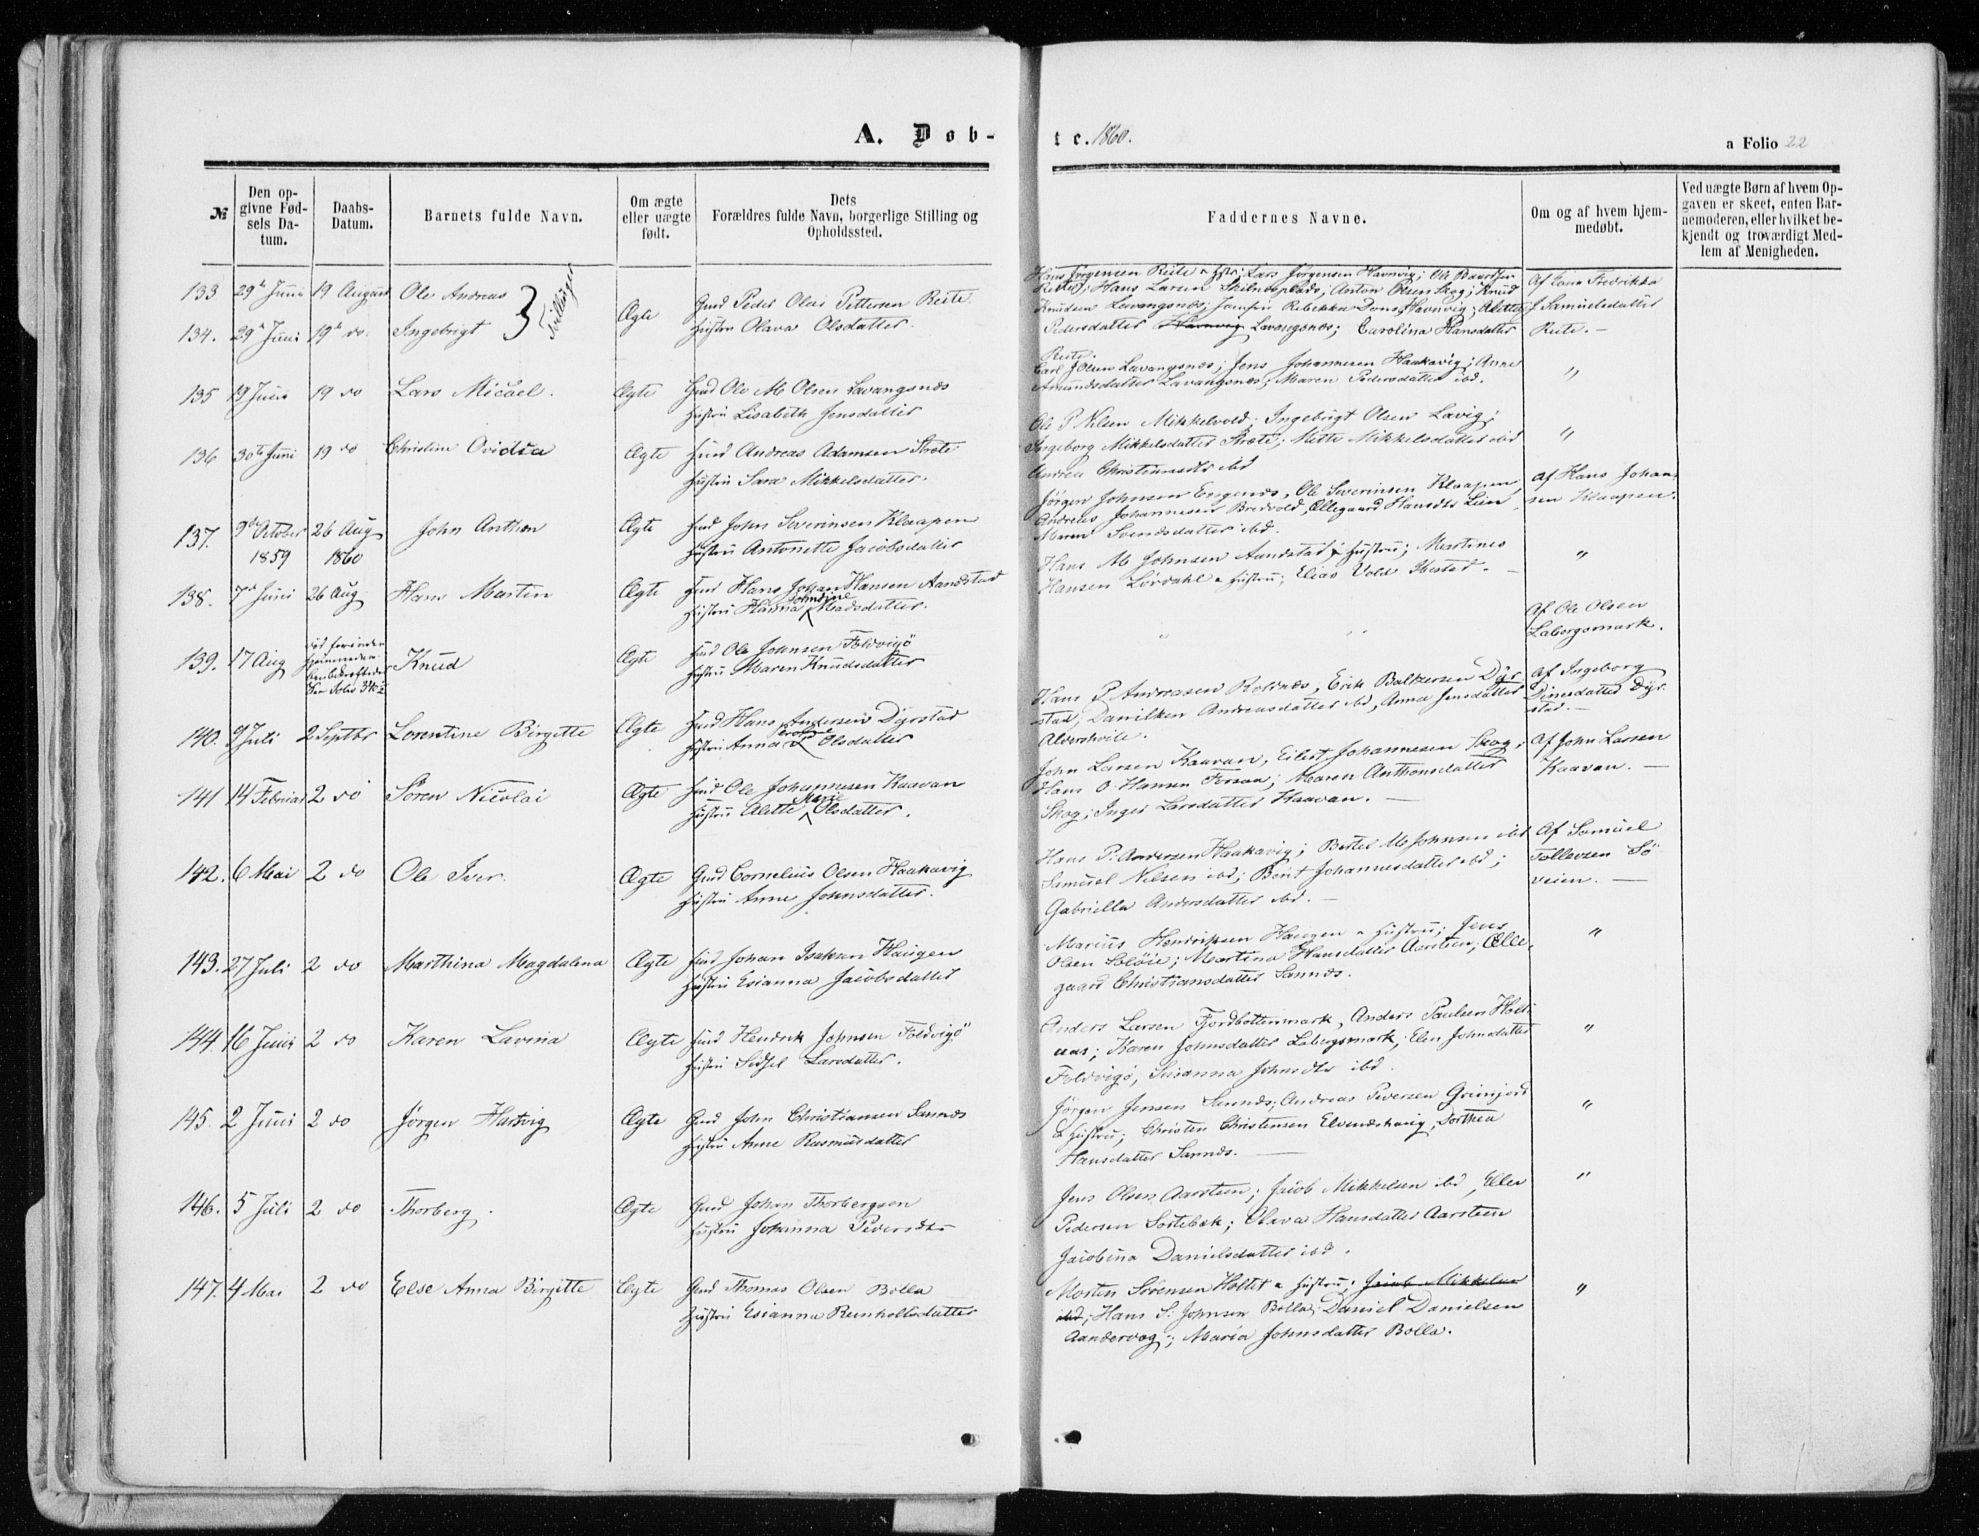 A. Døb-
te. 1860.
a Folio 22
№
Den op-
givne Fød-
sels Da-
tum.
Daabs-
Datum.
Barnets fulde Navn.
Om ægte
eller uægte
født.
Dets
Forældres fulde Navn, borgerlige Stilling og
Opholdssted.
Faddernes Navne.
Om og af hvem hjem-
medøbt.
Ved uægte Børn af hvem Op-
gaven er skeet, enten Bar-
nemoderen, eller hvilket be-
kjendt og troværdigt Med-
lem af Menigheden.
133 29de Juni 19 August Ole Andreas
134. 29de Juni 19de do. Ingebrigt
Tvillinger
Ægte
Gmd Peder Olai Pettersen Reite
Hustru Olava Olsdatter.
Hans Jørgensen Reite & Hstr; Lars Jørgensen Havnvig; Ole Baardsen
Reite; Hans Larsen; Anton Olsen Skog; Knud
Knudsen Lavangsnæs; Jomfru Rebekka Dons Havnvig; Alette
Pedersdatter Havnvig Lavangsnæs; Carolina Hansdatter
Reite.
Af Jana Fredrikka
Samuelsdatter
Reite. –
135 19 Juni 19 do Lars Micael. Ægte Gmd Ole M Olsen Lavangsnæs
Hustru Lisabeth Jensdatter
Carl J Olsen Lavangsnæs; Jens Johannesen Haakavig; Anne
Amundsdatter Lavangsnæs; Maren Pedersdatter ibd.
"
136 30te Juni 19 do Christine Ovidia Ægte Gmd Andreas Adamsen Strøte
Hustru Sara Mikkelsdatter.
Ole P Nilsen Mikkelvold; Ingebrigt Olsen Lavig;
Ingeborg Mikkelsdatter Strøte; Mette Mikkelsdatter ibd
Andrea Christensdtr ibd
"
137. 9de October 26 Aug John Anthon Ægte Gmd John Severinsen Klaapen
1859 1860
Hustru Antonette Jacobsdatter
Jørgen Johnsen Engenæs, Ole Severinsen Klaapen,
Andreas Johannesen Bredvold, Ellegaard Hansdtr Lien,
Maren Svendsdatter ibd.
af Hans Johan-
sen Klaapen.
138. 7de Juni 26 Aug Hans Martin Ægte Gmd Hans Johan Hansen Aandstad
Hustru Hanna Johndine Madsdatter.
Hans M Johnsen Aandstad & Hustru; Martines
Hansen Lørdahl & Hustru; Elias Vold Ibestad. –
"
139. 17 Aug
Knud Ægte Gmd Ole Johnsen Foldvigø
Hustru Maren Knudsdatter
" "
Af Ole Olsen
Labergsmark.
140. 9 Juli 2 Septbr Lorentine Birgitte Ægte Gmd Hans Andersen Dyrstad
Hustru Anna Olsdatter
Hans P Andreasen Roldnæs, Erik Baltzersen Dyr-
stad, Danilken Andreasdatter ibd, Anna Jensdatter
Aldershvile.
Af Ingeborg
Dinesdatter Dyr-
stad. –
141 14 Februar 2 do Søren Nicolai Ægte Gmd Ole Johannesen Kaavan
Hustru Alette Marie Olsdatter.
John Larsen Kaavan, Eilert Johannesen Skog;
Hans O. Hansen Forsaa; Maren Anthonsdatter
Skog; Inger Larsdatter Kaavan. –
Af John Larsen
Kaavan. –
142. 6 Mai 2 do Ole Iver. Ægte Gmd Cornelius Olsen Haakavig
Hustru Anne Johnsdatter.
Hans P. Andersen Haakavig; Bertel M Johnsen ibd
Samuel Nilsen ibd; Berit Johannesdatter ibd;
Gabriella Andersdatter ibd. –
Af Samuel
Tollevsen Sö-
veien. –
143. 27 Juli 2 do Marthina Magdalena Ægte Gmd Johan Isaksen Haugen
Hustru Esianna Jacobsdatter
Marius Hendriksen Haugen & Hustru; Jens
Olsen Soløie; Martina Hansdatter Aarsteen; Elle-
gaard Christiansdatter Sannæs.
"
144. 16 Juni 2 do Karen Lavina Ægte Gmd Hendrik Johnsen Foldvigö
Hustru Sidsel Larsdatter.
Anders Larsen Fjordbottenmark, Anders Paulsen Holt-
aas; Karen Johnsdatter Labergsmark; Elen Johnsdatter
Foldvigö, Susanna Johnsdtr ibd.
"
145. 2 Juni 2 do Jørgen Hartvig Ægte Gmd John Christiansen Sannæs
Hustru Anne Rasmusdatter
Jørgen Jensen Sannæs; Andreas Siversen Grønjord
& Hustru; Christen Christensen Elvenæshaug, Dorthea
Hansdatter Sannæs. –
"
146. 5 Juli 2 do Thorberg. Ægte Gmd Johan Thorbergsen
Hustru Johanna Siversdtr
Jens Olsen Aarsteen; Jacob Mikkelsen ibd, Eller
Pedersen Sortebæk; Olava Hansdatter Aarsteen
Jacobina Danielsdatter ibd.
"
147. 4 Mai 2 do Else Anna Birgitte Ægte Gmd Thomas Olsen Bolla
Hustru Esianna Reinholtsdatter
Morten Sørensen Holtet & Hustru; Jacob Mikkelsen
ibd; Hans S. Johnsen Bolla; Daniel Danielsen
Aandervag; Maria Johnsdatter Bolla.
"